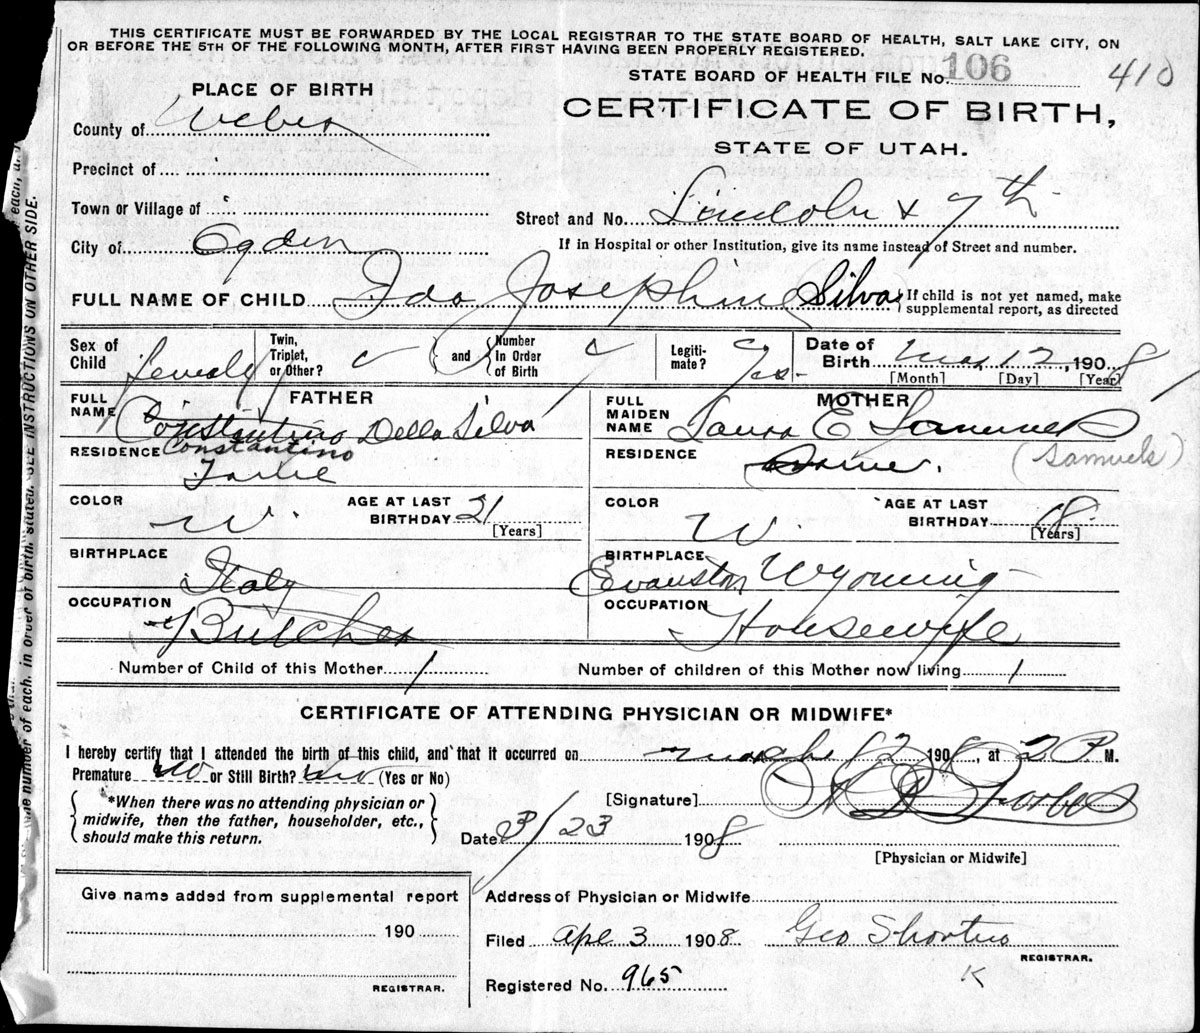 THIS CERTIFICATE MUST BE FORWARDED BY THE LOCAL REGISTRAR TO THE STATE BOARD OF HEALTH, SALT LAKE CITY, ON
OR BEFORE THE 5TH OF THE FOLLOWING MONTH, AFTER FIRST HAVING BEEN PROPERLY REGISTERED.
STATE BOARD OF HEALTH FILE No. 106
410
PLACE OF BIRTH
CERTIFICATE OF BIRTH,
County of Weber
STATE OF UTAH.
Precinct of
Town or Village of
Street and No. Lincoln & 7th
City of Ogden
If in Hospital or other Institution, give its name instead of Street and number.
FULL NAME OF CHILD Ida Josephine Silva
If child is not yet named, make
supplemental report, as directed
Sex of Child Female
Twin, Triplet, or Other?
and
Number In Order of Birth
Legiti-mate? Yes
Date of Birth Mar 12, 1908
[Month] [Day] [Year]
FATHER
FULL NAME Constantino Della Silva
Constantino
MOTHER
FULL MAIDEN NAME Laura E
(Samuels)
RESIDENCE
RESIDENCE Same.
COLOR W.
AGE AT LAST BIRTHDAY 21
[Years]
COLOR W
AGE AT LAST BIRTHDAY 18
[Years]
BIRTHPLACE Italy
BIRTHPLACE Evanston Wyoming
OCCUPATION Butcher
OCCUPATION Housewife
Number of Child of this Mother 1
Number of children of this Mother now living 1
CERTIFICATE OF ATTENDING PHYSICIAN OR MIDWIFE*
I hereby certify that I attended the birth of this child, and that it occurred on March 12 1908, at 2 P. M.
Premature No or Still Birth? No (Yes or No)
*When there was no attending physician or
midwife, then the father, householder, etc.,
should make this return.
[Signature] Forbes
Date 3/23 1908
[Physician or Midwife]
Give name added from supplemental report
190
REGISTRAR.
Address of Physician or Midwife
Filed Apl 3 1908 Geo
REGISTRAR.
K
Registered No. 965
each, in order of birth, stated. SEE INSTRUCTIONS ON OTHER SIDE.